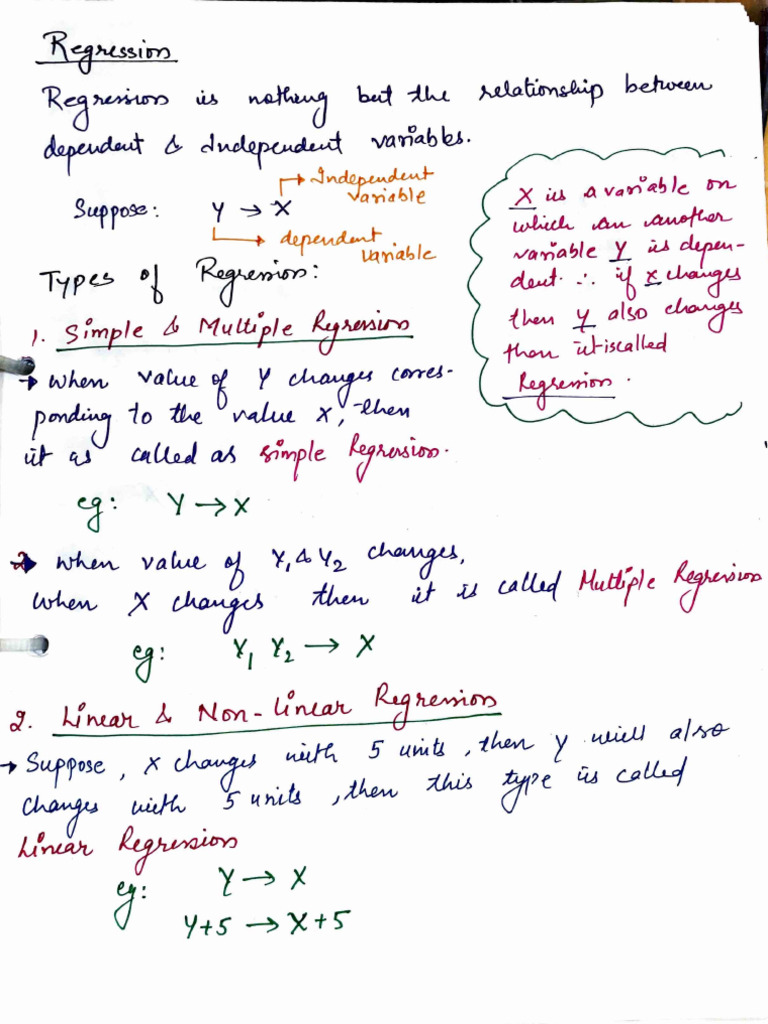 Regression
Regression is nothing but the relationship between
dependent & Independent variables.
Suppose: Y → X
→ Independent variable
→ dependent variable
X is a variable on
which an another
variable Y is depen-
dent ∴ if x changes
then y also changes
than it is called
Regression.
Types of Regression:
1. Simple & Multiple Regression
→ when value of Y changes corres-
ponding to the value X, then
it as called as simple Regression.
eg: Y → X
→ when value of Y1 & Y2 changes,
when X changes then it is called Multiple Regression
eg: Y1 Y2 → X
2. Linear & Non-Linear Regression
→ Suppose, X changes with 5 units, then Y will also
changes with 5 units, then this type is called
Linear Regression
eg: Y → X
Y+5 → X+5